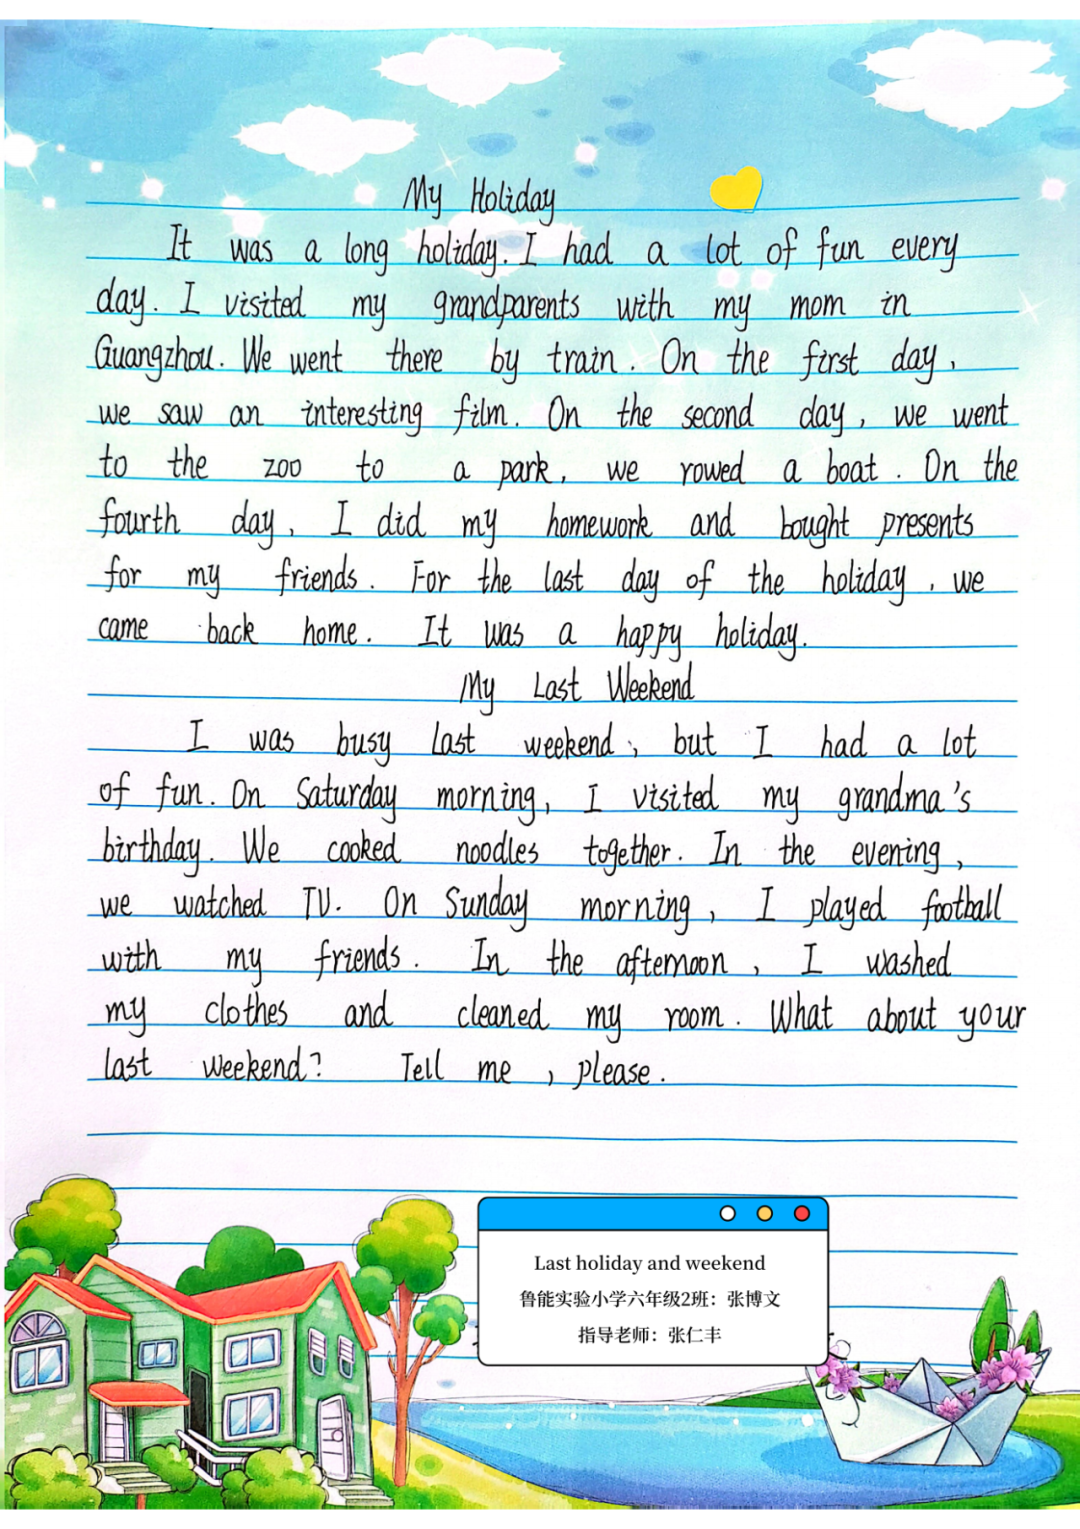 My Holiday
It was a long holiday. I had a lot of fun every
day. I visited my grandparents with my mom in
Guangzhou. We went there by train. On the first day,
we saw an interesting film. On the second day, we went
to the zoo to a park, we rowed a boat. On the
fourth day, I did my homework and bought presents
for my friends. For the last day of the holiday, we
came back home. It was a happy holiday.
My Last Weekend
I was busy last weekend, but I had a lot
of fun. On Saturday morning, I visited my grandma's
birthday. We cooked noodles together. In the evening,
we watched TV. On Sunday morning, I played football
with my friends. In the afternoon, I washed
my clothes and cleaned my room. What about your
last weekend? Tell me, please.
Last holiday and weekend
鲁能实验小学六年级2班：张博文
指导老师：张仁丰